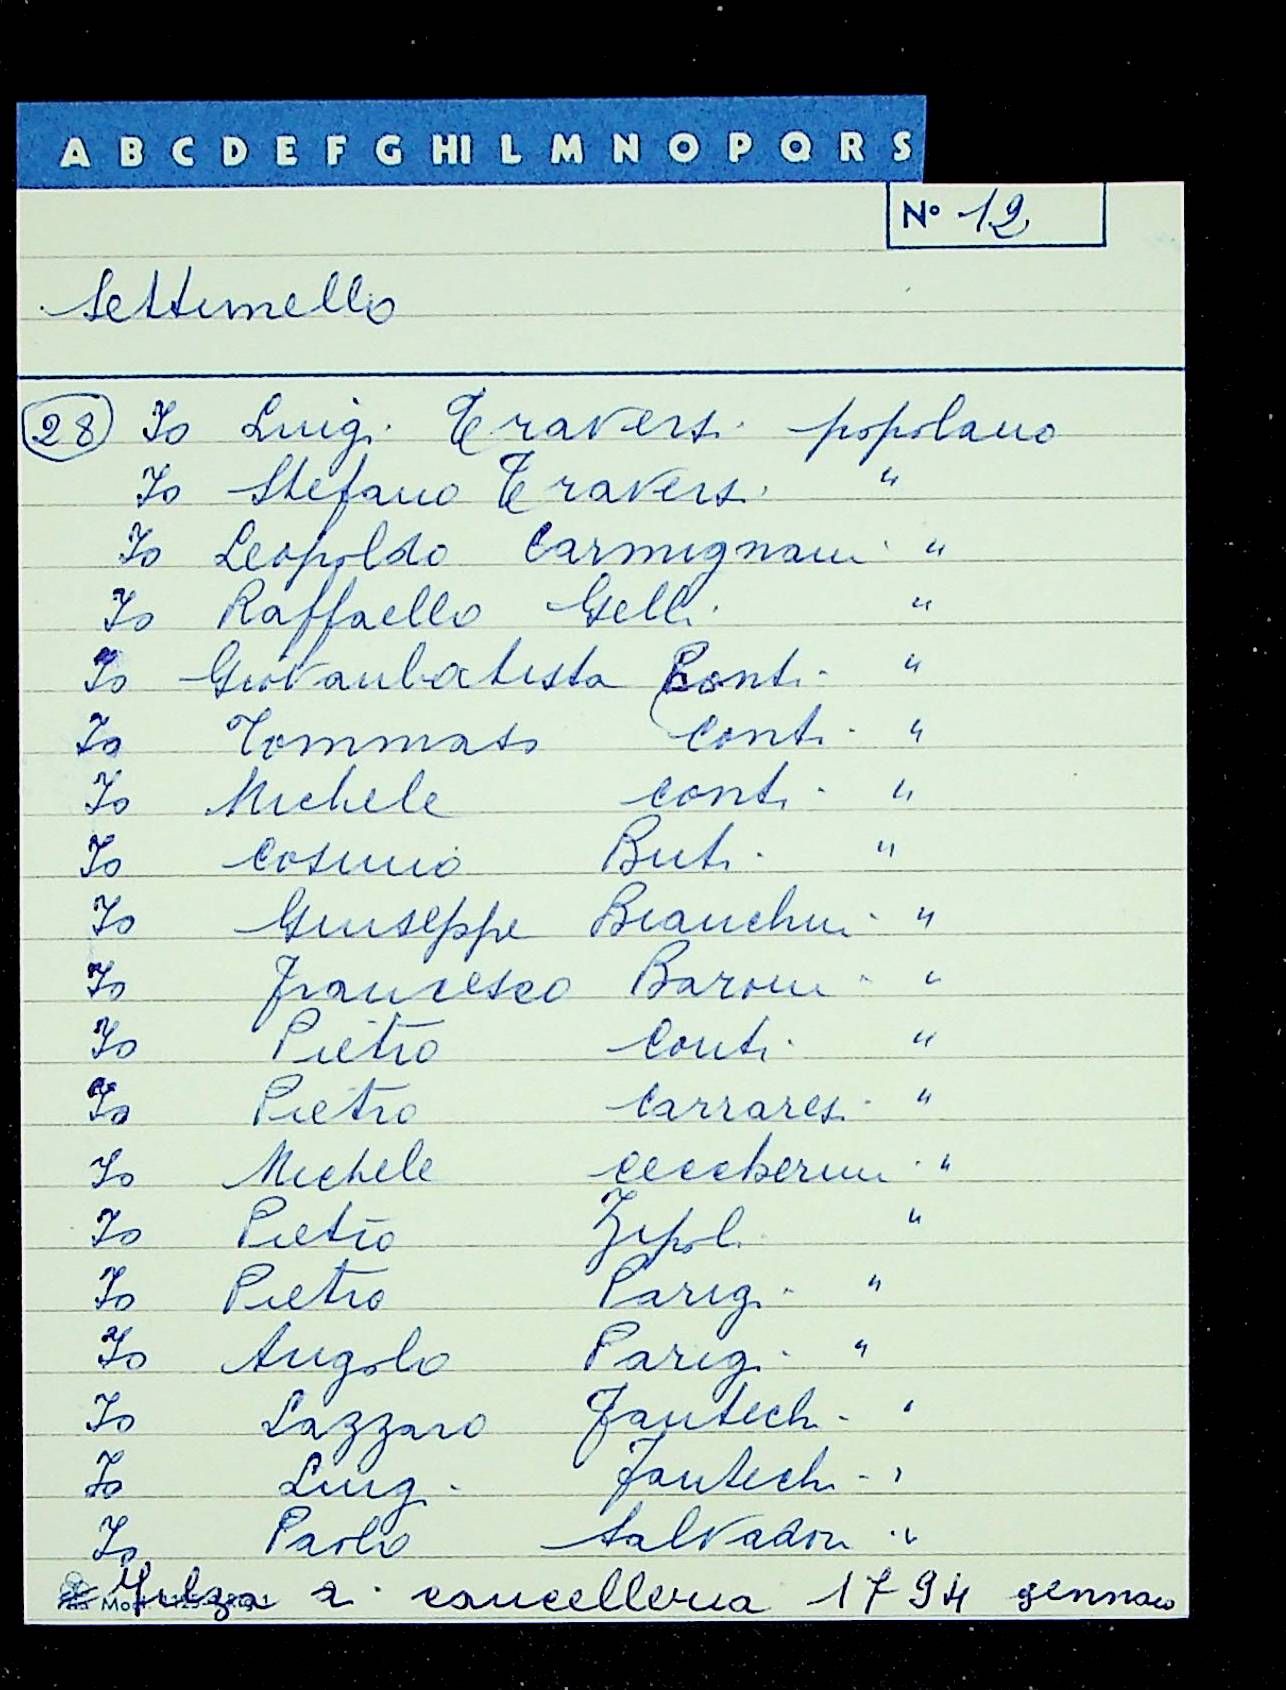 A B C D E F G HI L M N O P Q R S
N° 12
Settimello
28 Io Luigi Traversi popolano
Io Stefano Traversi "
Io Leopoldo Carmignani "
Io Raffaello Gelli "
Io Giovanbatista Conti "
Io Tommaso Conti "
Io Michele Conti "
Io Cosimo Buti "
Io Giuseppe Bianchini "
Io Francesco Baroni "
Io Pietro Conti "
Io Pietro Carraresi "
Io Michele Ceccherini "
Io Pietro Zipoli "
Io Pietro Parigi "
Io Angolo Parigi "
Io Lazzaro Fantechi "
Io Luigi Fantechi "
Io Paolo Salvadori "
Filza 2 cancelleria 1794 gennaio